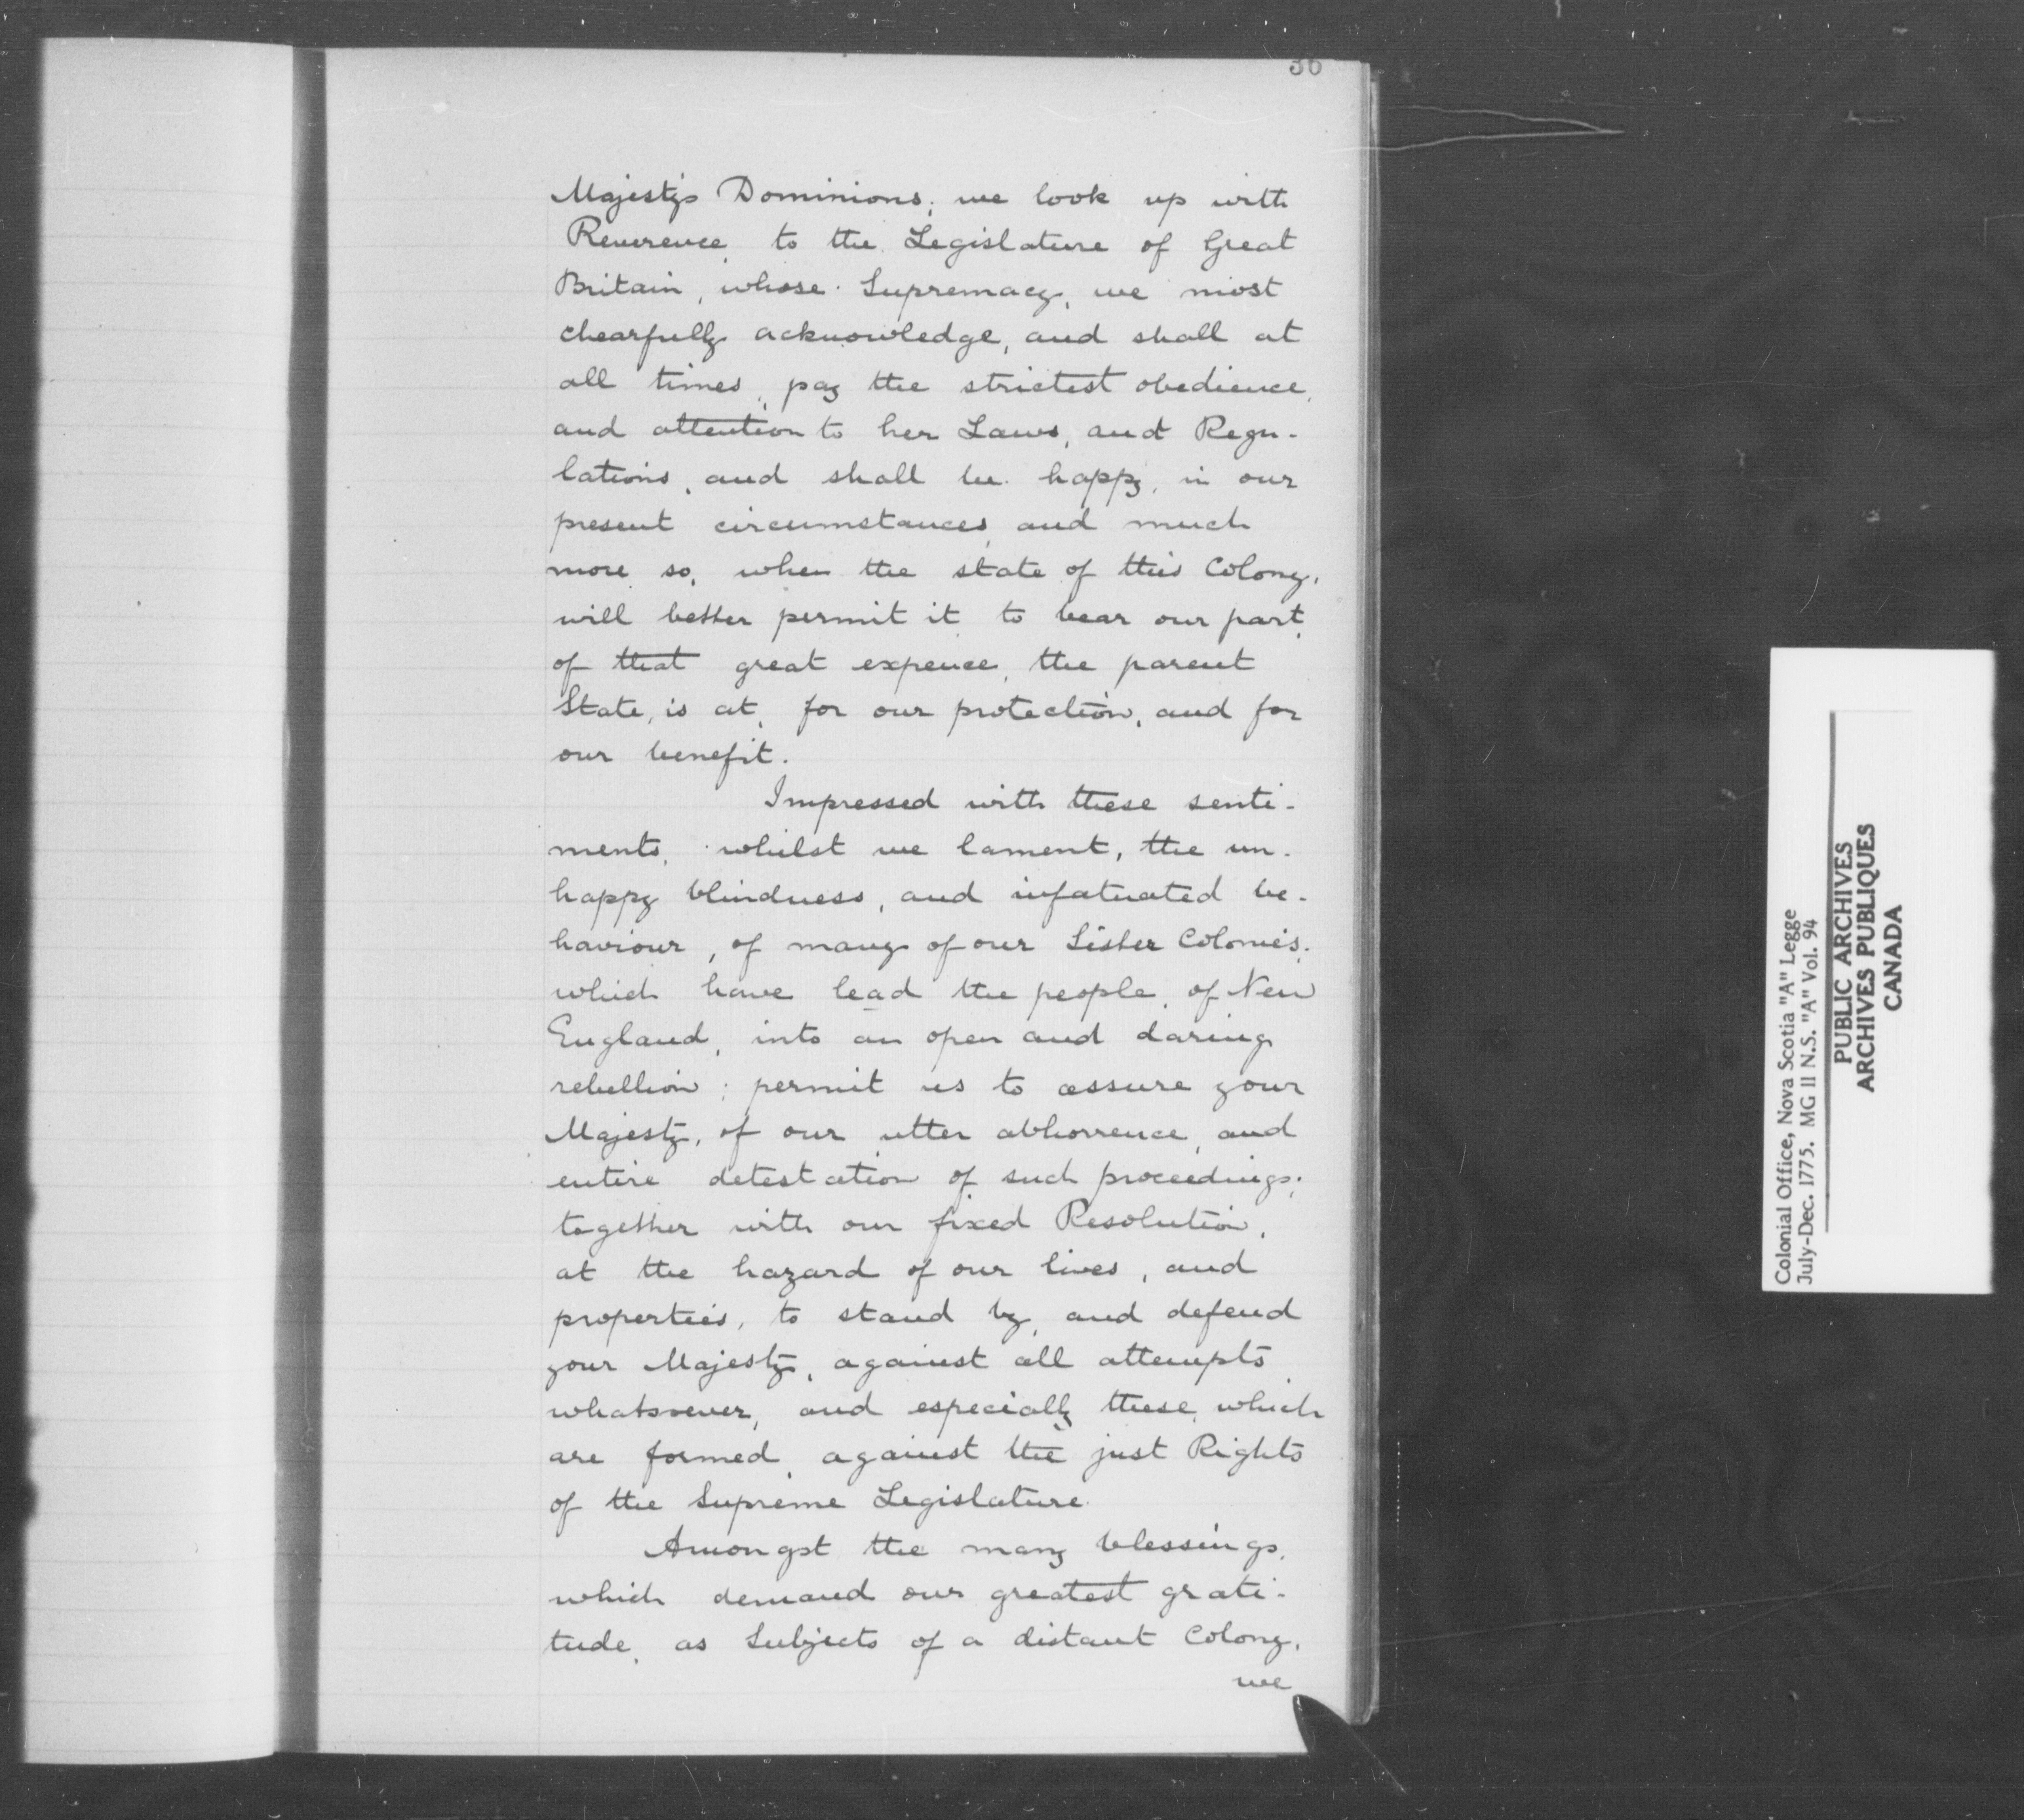 36
Majesty's Dominions; we look up with
Reverence, to the Legislature of Great
Britain, whose Supremacy, we most
chearfully acknowledge, and shall at
all times, pay the strictest obedience,
and attention to her Laws, and Regu-
lations, and shall be happy, in our
present circumstances, and much
more so, when the state of this Colony,
will better permit it, to bear our part,
of that great expence, the parent
State, is at, for our protection, and for
our benefit.
Impressed with these senti-
ments, whilst we lament, the un-
happy blindness, and infatuated be-
haviour, of many of our Sister Colonies,
which have lead the people, of New
England, into an open and daring
rebellion; permit us to assure your
Majesty, of our utter abhorrence, and
entire detestation of such proceedings;
together with our fixed Resolution,
at the hazard of our lives, and
properties, to stand by, and defend
your Majesty, against all attempts
whatsoever, and especially these, which
are formed, against the just Rights
of the Supreme Legislature.
Amongst the many blessings,
which demand our greatest grati-
tude, as Subjects of a distant Colony,
we
Colonial Office, Nova Scotia "A" Legge
July-Dec. 1775. MG 11 N.S. "A" Vol. 94
PUBLIC ARCHIVES
ARCHIVES PUBLIQUES
CANADA